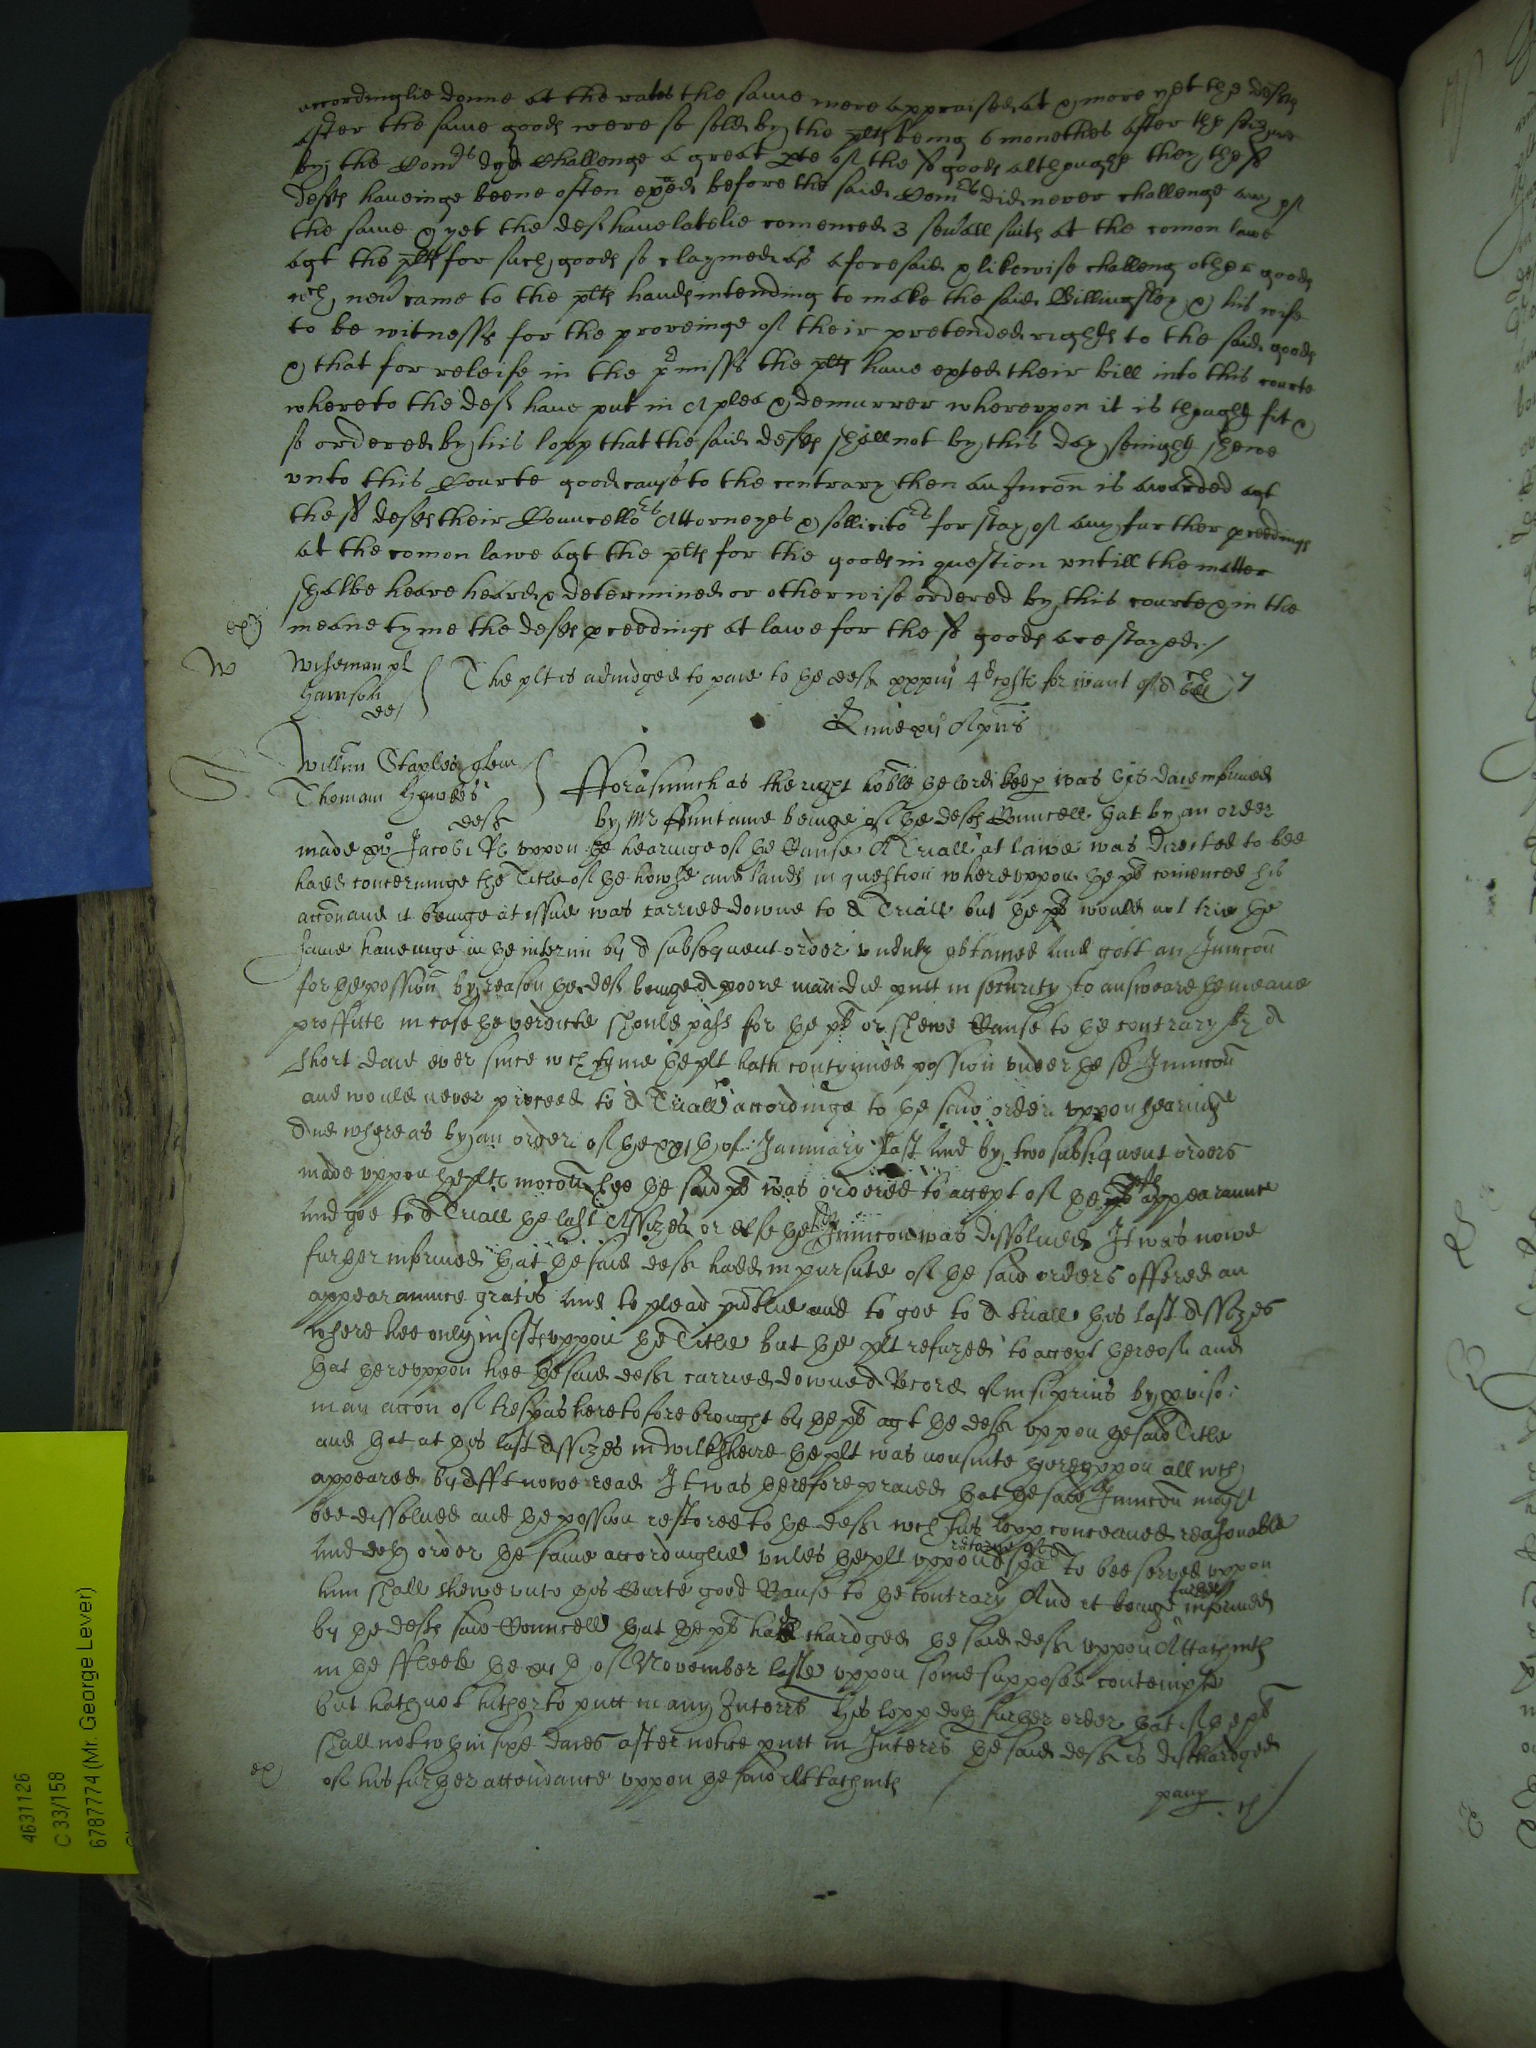 accordinglie donne at the rates the same were appraised at & more yet the defts
after the same goods were so sold by the plts being 6 monethes after the seizure
by the Comrs dyd Challenge a great pte of the sd goods althoughe they the sd
defts haueinge beene often exãed before the said Comrs did never challenge any of
the same & yet the deft haue latelie comenced 3 seu'all suits at the comon lawe
agt the plts for such goods so claymed as aforesaid & likewise challeng other goods
wch neu' came to the plts hands intending to make the said Billingsley & his wife
to be witnesses for the proveinge of their pretended rights to the said goods
& that for releife in the p'misses the plts haue exhted their bill into this courte
whereto the deft haue put in A plea & demurrer wherevpon it is thought fit &
so ordered by his lopp that the said defts shall not by this day senight shewe
vnto this Courte good cause to the contrary then an Iniuncon is awarded agt
the sd defts their Councellors Attorneyes & sollicitors for stay of any further pceedings
at the comon lawe agt the plts for the goods in question vntill the matter
shalbe heare heard & determined or otherwise ordered by this courte & in the
meane tyme the defts pceedings at lawe for the sd goods are stayed /
ex
W
Wiseman pl
Harrison
def
The plt is adiudged to paie to the deft xxxiijs 4d costs for want of a bill
Jovis xij Aprilis
Willm Staples plt
Thomam Hawes
deft
Fforasmuch as the right hoble the lord keep was this daie informed
by Mr Ffountaine beinge of the defts Councell that by an order
made Jacobi Rs vppon the hearinge of the Cause A Triall at lawe was directed to bee
hadd concerninge the Title of the howse and lands in question wherevppon the plt comenced his
accon and it beinge at issue was carried downe to A Triall but the plt would not trie the
same haueinge in the interim by A subsequent order vnduly obtained and gott an Iniuncon
for the possion by reason the deft beinge A poore man did not putt in security to answeare the meane
proffitts in case the verdicte should pass for the plt or shewe Cause to the contrary by A
short daie ever since wch tyme the plt hath contynued possion vnder the sd Iniuncon
and would never proceed to A Triall accordinge to the said order vppon hearinge
And whereas by an order of the xxjth of January last and by two subsequent orders
made vppon the plts mocon the said plt was ordered to accept of the defts appearannce
and goe to A Triall the last Assizes or else the sd Iniuncon was dissolued It was nowe
further informed that the said deft hadd in pursute of the said orders offered an
appearannce gratis and to plead and to goe to A triall this last Assizes
where hee only insists vppon the Title but the plt refused to accept thereof and
that therevppon hee the said deft carried downe A Record of nisi prius by proviso
in an accon of trespas heretofore brought by the plt agt the deft vppon the said Title
and that at this last Assizes in Wiltsheire the plt was nonsuite therevppon all wch
appeared by Afft nowe read It was therefore praied that the said Iniuncon might
bee dissolued and the possion restored to the deft wch his lopp conceaued reasonable
and doth order the same accordinglie vnles the plt vppon retorne of A spa To bee serued vppon
him shall shewe vnto this Courte good Cause to the contrary And it beinge further informed
by the defts said Councell that the plt hadd chardged the said deft vppon Attachmts
in the Ffleete the xijth of November laste vppon some supposed contempts
but hath not hitherto putt in any Interrs His lopp doth further order that if the plt
shall not wthin sixe daies after notice putt in Interrs the said deft is dischardged
of his further attendance vppon the said Attachmts
ex
4631126
C 33/158
6787774 (Mr. George Lever)